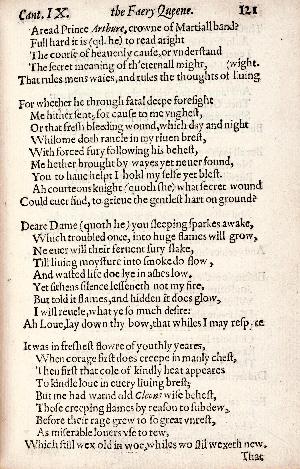 Cant. IX. the Faery Queene. 121
Aread Prince Arthure, crowne of Martiall band?
Full hard it is (qd. he) to read aright
The course of heauenly cause, or vnderstand
The secret meaning of th'eternall might, (wight.
That rules mens waies, and rules the thoughts of liuing
For whether he through fatal deepe foresight
Me hither sent, for cause to me vnghest,
Or that fresh bleeding wound, which day and night
Whilome doth rancle in my riuen brest,
With forced fury following his behest,
Me hether brought by wayes yet neuer found,
You to haue helpt I hold my selfe yet blest.
Ah courteous knight (quoth she) what secret wound
Could euer find, to grieue the gentlest hart on ground?
Deare Dame (quoth he) you sleeping sparkes awake,
Which troubled once, into huge flames will grow,
Ne euer will their feruent fury slake,
Till liuing moysture into smoke do flow,
And wasted life doe lye in ashes low.
Yet sithens silence lesseneth not my fire,
But told it flames, and hidden it does glow,
I will reuele, what ye so much desire:
Ah Loue, lay down thy bow, that whiles I may respyre
It was in freshest flowre of youthly yeares,
When corage first does creepe in manly chest,
Then first that cole of kindly heat appeares
To kindle loue in euery liuing brest;
But me had warnd old Cleons wise behest,
Those creeping flames by reason to subdew,
Before their rage grew to so great vnrest,
As miserable louers vse to rew,
Which still wex old in woe, whiles wo stil wexeth new.
That